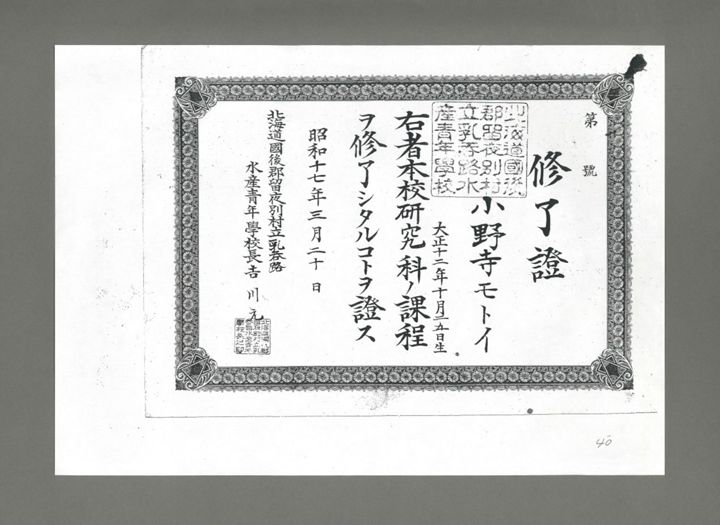 第 號
修了證
北海道國後
郡留夜別村
立乳呑路水
産青年學校
小野寺モトイ
大正十二年十月一五日生
右者本校研究科ノ課程
ヲ修了シタルコトヲ證ス
昭和十七年三月二十日
北海道國後郡留夜別村立乳呑路
水産青年學校長吉川元
40